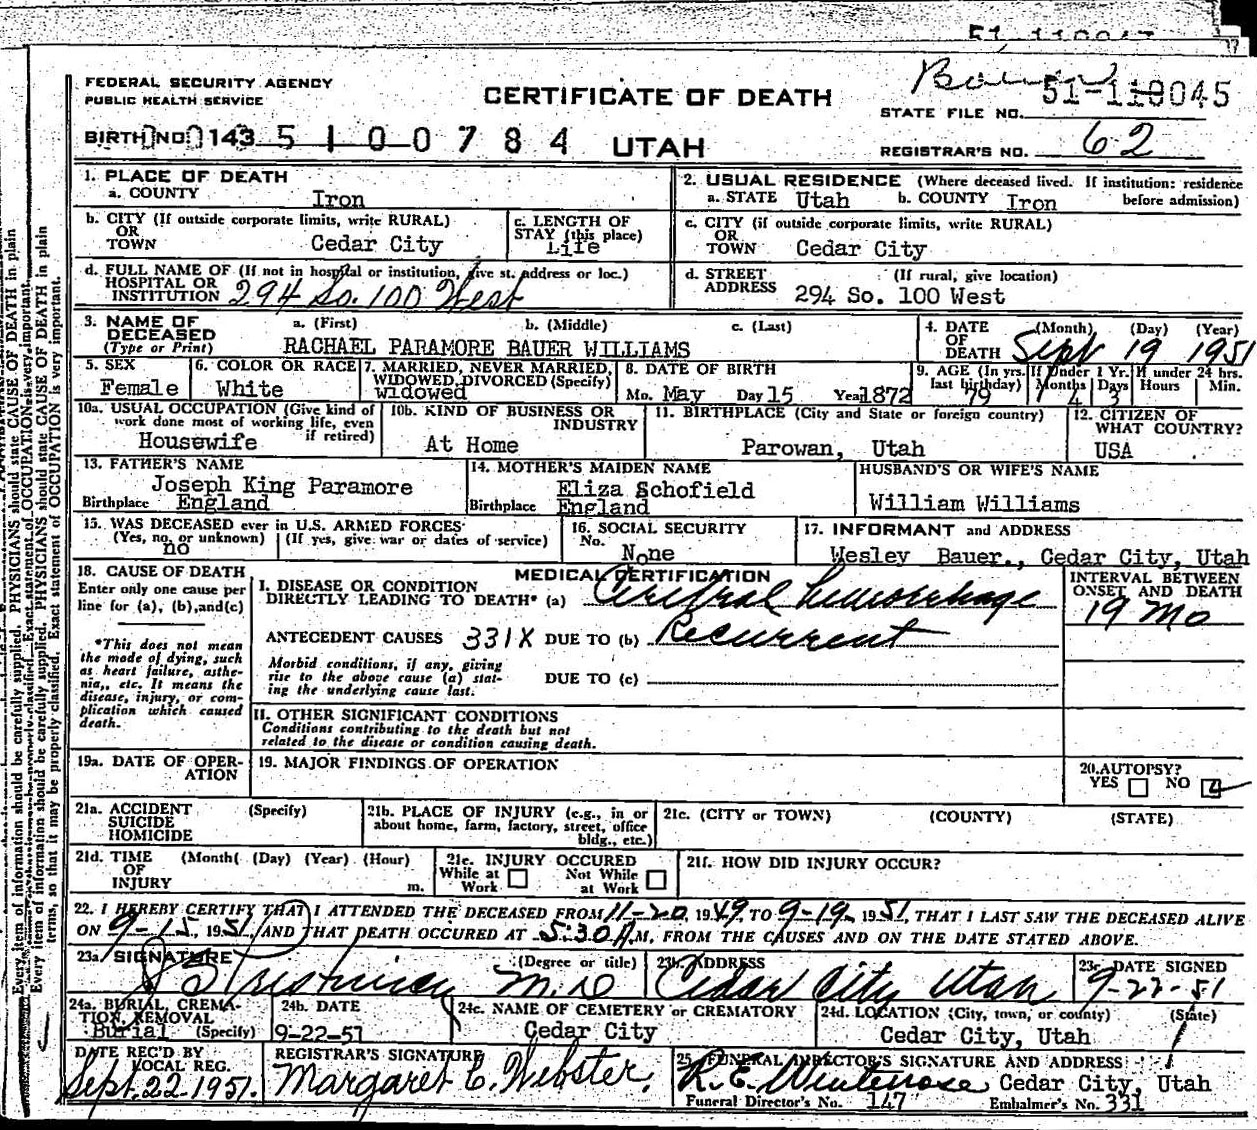 FEDERAL SECURITY AGENCY
PUBLIC HEALTH SERVICE
CERTIFICATE OF DEATH
Bauer
STATE FILE NO. 51-110045
BIRTH NO. 143 5100784 UTAH
REGISTRAR'S NO. 62
1. PLACE OF DEATH
a. COUNTY Iron
2. USUAL RESIDENCE (Where deceased lived. If institution: residence before admission)
a. STATE Utah b. COUNTY Iron
b. CITY (If outside corporate limits, write RURAL) OR TOWN Cedar City
c. LENGTH OF STAY (this place) Life
c. CITY (if outside corporate limits, write RURAL) OR TOWN Cedar City
d. FULL NAME OF (If not in hospital or institution, give st. address or loc.) HOSPITAL OR INSTITUTION 294 So. 100 West
d. STREET ADDRESS (If rural, give location) 294 So. 100 West
3. NAME OF DECEASED (Type or Print) a. (First) b. (Middle) c. (Last)
RACHAEL PARAMORE BAUER WILLIAMS
4. DATE OF DEATH (Month) (Day) (Year) Sept 19 1951
5. SEX Female
6. COLOR OR RACE White
7. MARRIED, NEVER MARRIED, WIDOWED, DIVORCED (Specify) widowed
8. DATE OF BIRTH Mo. May Day 15 Year 1872
9. AGE (In yrs. last birthday) 79 If Under 1 Yr. Months 4 Days 3 If under 24 hrs. Hours Min.
10a. USUAL OCCUPATION (Give kind of work done most of working life, even if retired) Housewife
10b. KIND OF BUSINESS OR INDUSTRY At Home
11. BIRTHPLACE (City and State or foreign country) Parowan, Utah
12. CITIZEN OF WHAT COUNTRY? USA
13. FATHER'S NAME Joseph King Paramore
Birthplace England
14. MOTHER'S MAIDEN NAME Eliza Schofield
Birthplace England
HUSBAND'S OR WIFE'S NAME William Williams
15. WAS DECEASED ever in U.S. ARMED FORCES (Yes, no, or unknown) (If yes, give war or dates of service) no
16. SOCIAL SECURITY No. None
17. INFORMANT and ADDRESS Wesley Bauer., Cedar City, Utah
18. CAUSE OF DEATH
Enter only one cause per line for (a), (b), and (c)
*This does not mean the mode of dying, such as heart failure, asthenia, etc. It means the disease, injury, or complication which caused death.
MEDICAL CERTIFICATION
I. DISEASE OR CONDITION DIRECTLY LEADING TO DEATH* (a) Cerebral hemorrhage
INTERVAL BETWEEN ONSET AND DEATH
19 Mo
ANTECEDENT CAUSES 331X DUE TO (b) Recurrent
Morbid conditions, if any, giving rise to the above cause (a) stating the underlying cause last.
DUE TO (c)
II. OTHER SIGNIFICANT CONDITIONS
Conditions contributing to the death but not related to the disease or condition causing death.
19a. DATE OF OPERATION
19. MAJOR FINDINGS OF OPERATION
20. AUTOPSY? YES NO
21a. ACCIDENT SUICIDE HOMICIDE (Specify)
21b. PLACE OF INJURY (e.g., in or about home, farm, factory, street, office bldg., etc.)
21c. (CITY or TOWN) (COUNTY) (STATE)
21d. TIME OF INJURY (Month) (Day) (Year) (Hour) m.
21e. INJURY OCCURED While at Work Not While at Work
21f. HOW DID INJURY OCCUR?
22. I HEREBY CERTIFY THAT I ATTENDED THE DECEASED FROM 11-20, 1949 TO 9-19, 1951, THAT I LAST SAW THE DECEASED ALIVE
ON 9-15, 1951, AND THAT DEATH OCCURED AT 5:30 A.M. FROM THE CAUSES AND ON THE DATE STATED ABOVE.
23a. SIGNATURE (Degree or title) M.D.
23b. ADDRESS Cedar City Utah
23c. DATE SIGNED 9-22-51
24a. BURIAL, CREMATION, REMOVAL (Specify) Burial
24b. DATE 9-22-51
24c. NAME OF CEMETERY or CREMATORY Cedar City
24d. LOCATION (City, town, or county) (State) Cedar City, Utah
DATE REC'D BY LOCAL REG. Sept. 22 1951
REGISTRAR'S SIGNATURE Margaret C. Webster.
25. FUNERAL DIRECTOR'S SIGNATURE AND ADDRESS Cedar City, Utah
Funeral Director's No. 147 Embalmer's No. 331
Every item of information should be carefully supplied. PHYSICIANS should state CAUSE OF DEATH in plain terms, so that it may be properly classified. Exact statement of OCCUPATION is very important.